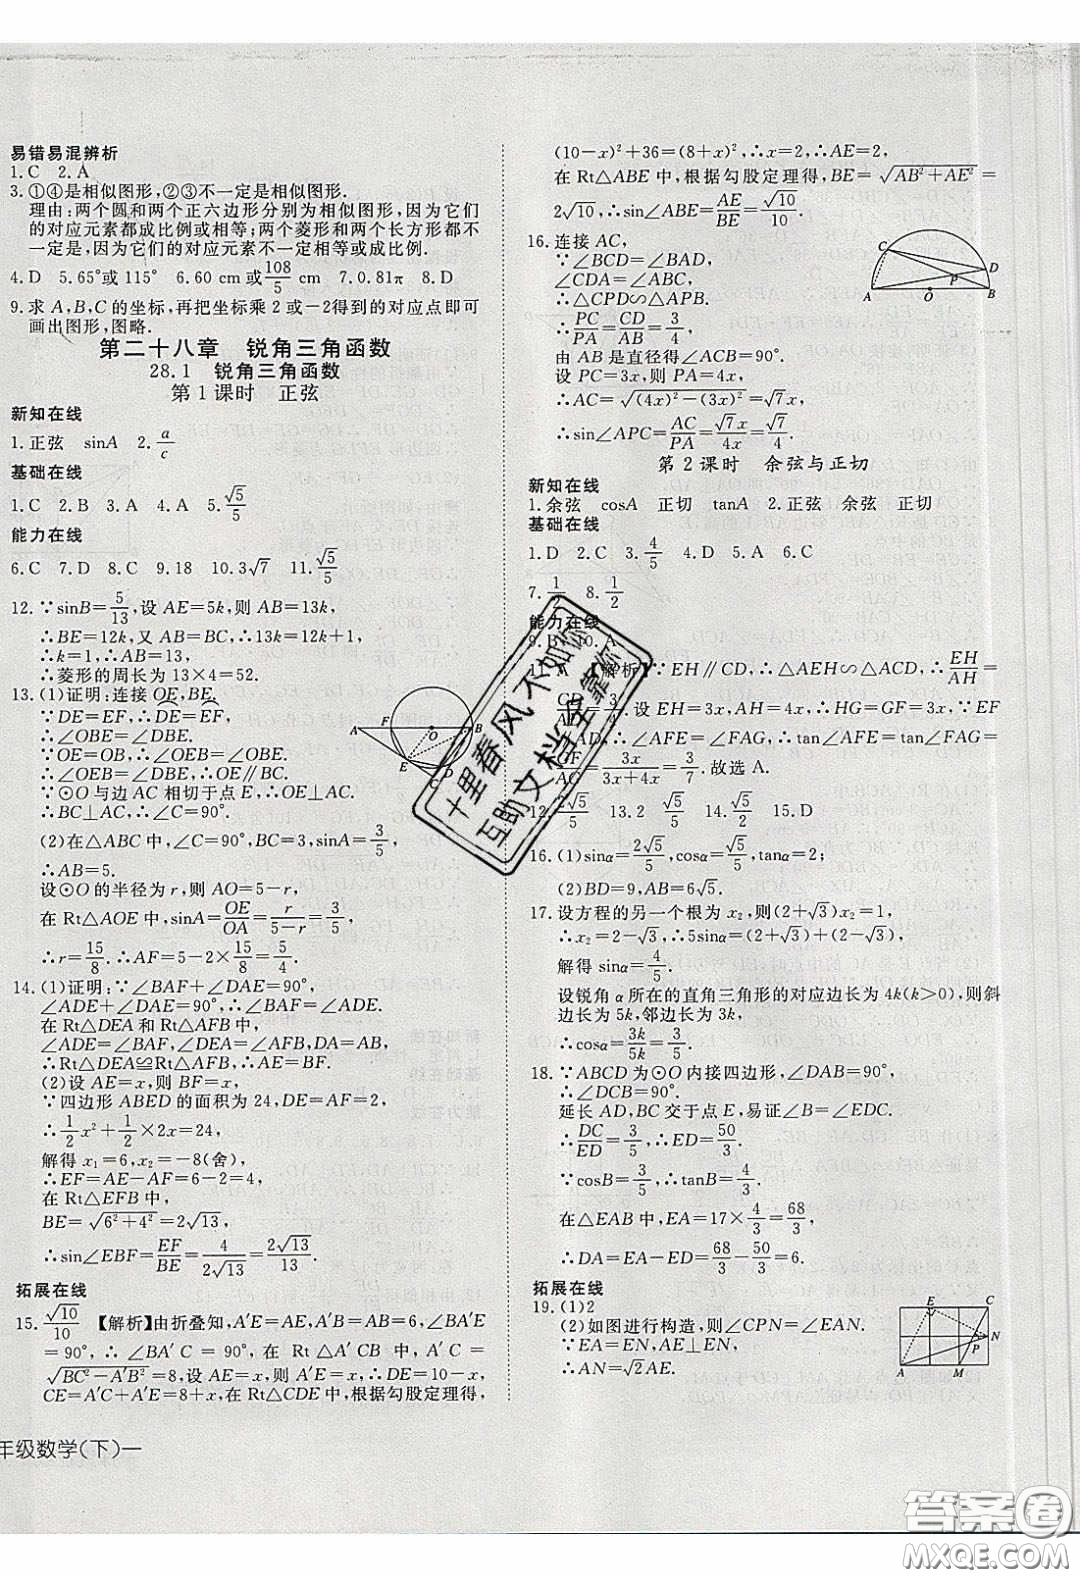 易错易混辨析
1.C 2.A
3.①④是相似图形,②③不一定是相似图形.
理由:两个圆和两个正六边形分别为相似图形,因为它们
的对应元素都成比例或相等;两个菱形和两个长方形都不
一定是,因为它们的对应元素不一定相等或成比例.
4.D 5.65°或115° 6.60 cm或108/5 cm 7.0.81π 8.D
9.求A,B,C的坐标,再把坐标乘2或-2得到的对应点即可
画出图形,图略.
第二十八章 锐角三角函数
28.1 锐角三角函数
第1课时 正弦
新知在线
1.正弦 sinA 2.a/c
基础在线
1.C 2.B 3.A 4.A 5.√5/5
能力在线
6.C 7.D 8.C 9.18 10.3√7 11.√5/5
12.∵sinB=5/13,设AE=5k,则AB=13k,
∴BE=12k,又AB=BC,∴13k=12k+1,
∴k=1,∴AB=13,
∴菱形的周长为13×4=52.
13.(1)证明:连接OE,BE.
∵DE=EF,∴DE=EF,
∴∠OBE=∠DBE.
∵OE=OB,∴∠OEB=∠OBE,
∴∠OEB=∠DBE,∴OE∥BC.
∵⊙O与边AC相切于点E,∴OE⊥AC.
∴BC⊥AC,∴∠C=90°.
(2)在△ABC中,∠C=90°,BC=3,sinA=3/5,
∴AB=5.
设⊙O的半径为r,则AO=5-r,
在Rt△AOE中,sinA=OE/OA=r/(5-r)=3/5,
∴r=15/8.∴AF=5-2×15/8=5/4.
14.(1)证明:∵∠BAF+∠DAE=90°,
∠ADE+∠DAE=90°,∴∠BAF=∠ADE.
在Rt△DEA和Rt△AFB中,
∠ADE=∠BAF,∠DEA=∠AFB,DA=AB,
∴Rt△DEA≌Rt△AFB,∴AE=BF.
(2)设AE=x,则BF=x,
∵四边形ABED的面积为24,DE=AF=2,
∴1/2x²+1/2×2x=24,
解得x₁=6,x₂=-8(舍),
∴EF=AE-AF=6-2=4,
在Rt△EFB中,
BE=√(6²+4²)=2√13,
∴sin∠EBF=EF/BE=4/(2√13)=2√13/13.
拓展在线
15.√10/10 【解析】由折叠知,A′E=AE,A′B=AB=6,∠BA′E
=90°,∴∠BA′C=90°,在Rt△A′CB中,A′C=
√(BC²-A′B²)=8,设AE=x,则A′E=x,∴DE=10-x,
CE=A′C+A′E=8+x,在Rt△CDE中,根据勾股定理得,
(10-x)²+36=(8+x)²,∴x=2,∴AE=2,
在Rt△ABE中,根据勾股定理得,BE=√(AB²+AE²)=
2√10,∴sin∠ABE=AE/BE=√10/10.
16.连接AC,
∵∠BCD=∠BAD,
∠CDA=∠ABC,
∴△CPD∽△APB.
∴PC/PA=CD/AB=3/4
由AB是直径得∠ACB=90°.
设PC=3x,则PA=4x,
∴AC=√((4x)²-(3x)²)=√7x,
∴sin∠APC=AC/PA=√7x/4x=√7/4.
第2课时 余弦与正切
新知在线
1.余弦 cosA 正切 tanA 2.正弦 余弦 正切
基础在线
1.D 2.C 3.4/5 4.D 5.A 6.C
7.1/2 8.1/2
能力在线
9.B 10.A
11.A 【解析】∵EH∥CD,∴△AEH∽△ACD,∴EH/AH
=CD/AD=3/4.设EH=3x,AH=4x,∴HG=GF=3x,∵EF
∥AD,∴∠AFE=∠FAG,∴tan∠AFE=tan∠FAG=
GF/AC=3x/(3x+4x)=3/7.故选A.
12.2√5/5 13.2 14.√5/5 15.D
16.(1)sinα=2√5/5,cosα=√5/5,tanα=2;
(2)BD=9,AB=6√5.
17.设方程的另一个根为x₂,则(2+√3)x₂=1,
∴x₂=2-√3,∴5sinα=(2+√3)+(2-√3),
解得sinα=4/5.
设锐角α所在的直角三角形的对应边长为4k(k>0),则斜
边长为5k,邻边长为3k,
∴cosα=3k/5k=3/5.
18.∵ABCD为⊙O内接四边形,∠DAB=90°,
∴∠DCB=90°.
延长AD,BC交于点E,易证∠B=∠EDC.
∴DC/ED=3/5,∴ED=50/3.
∵cosB=3/5,∴tanB=4/3.
在△EAB中,EA=17×4/3=68/3,
∴DA=EA-ED=68/3-50/3=6.
拓展在线
19.(1)2
(2)如图进行构造,则∠CPN=∠EAN.
∵EA=EN,AE⊥EN,
∴AN=√2AE.
年级数学(下)一
十里春风不如你
互助文档全靠你
答案圈
MXQE.COM